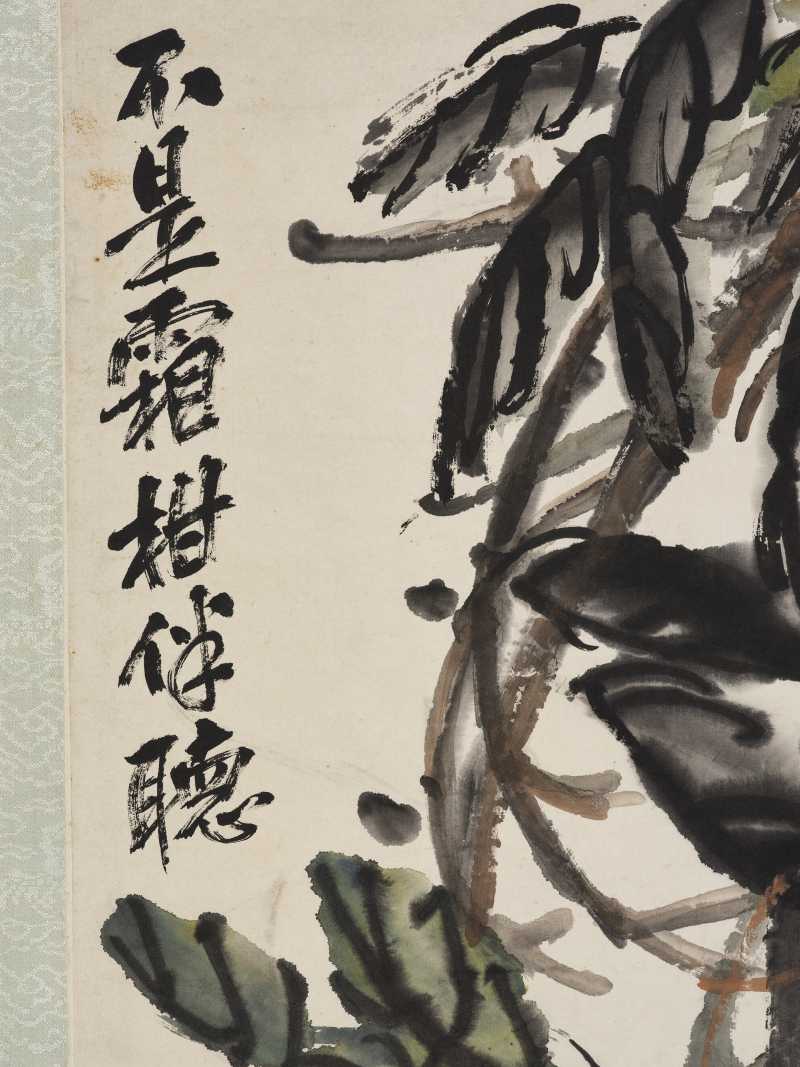 不是霜柑伴聽